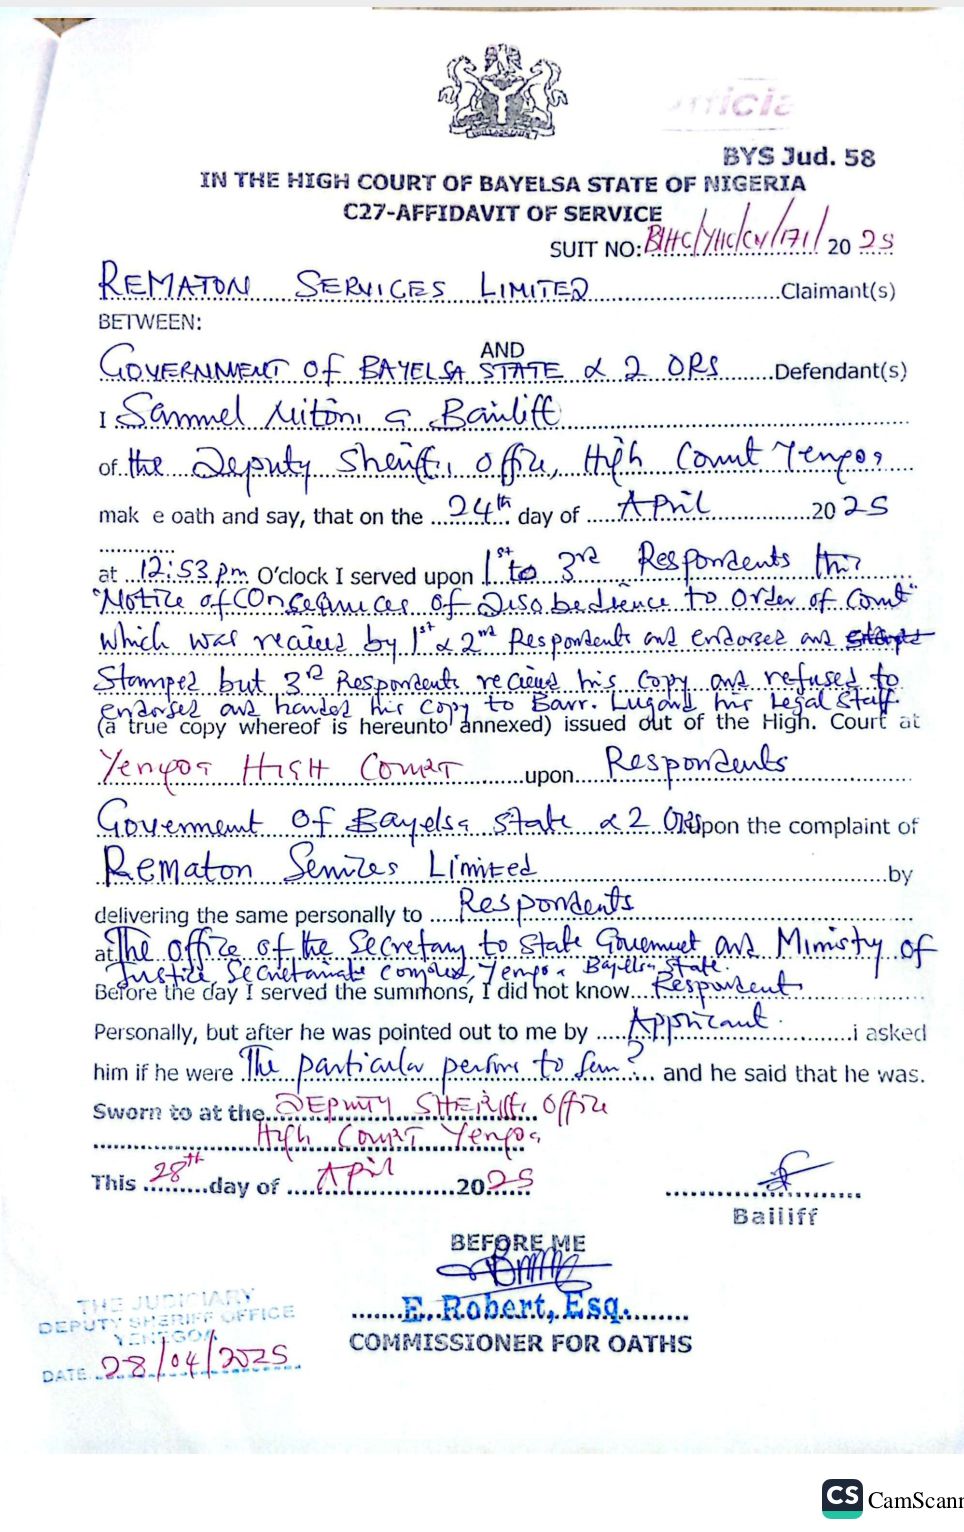 Official
BYS Jud. 58
IN THE HIGH COURT OF BAYELSA STATE OF NIGERIA
C27-AFFIDAVIT OF SERVICE
SUIT NO: BYHC/YHC/CV/171/ 20 25
REMATON SERVICES LIMITED Claimant(s)
BETWEEN:
AND
GOVERNMENT OF BAYELSA STATE & 2 ORS Defendant(s)
I Samuel a Bailiff
of the Deputy Sheriff, office, High Court Yenagoa
mak e oath and say, that on the 24th day of APRIL 20 25
at 12:53 pm O'clock I served upon 1st to 3rd Respondents this
"Notice of Consequences of Disobedience to Order of Court"
which was recieved by 1st & 2nd Respondents and endorsed and
Stamped but 3rd Respondents recieved his copy and refused to
endorsed and handed his copy to Barr. Lugard his Legal Staff.
(a true copy whereof is hereunto annexed) issued out of the High. Court at
Yenagoa HIGH COURT upon Respondents
Government of Bayelsa State & 2 Ors upon the complaint of
Rematon Services Limited by
delivering the same personally to Respondents
at The office of the Secretary to State Government and Ministry of
Justice, Secretariate complex, Yenagoa Bayelsa State.
Before the day I served the summons, I did not know Respondent
Personally, but after he was pointed out to me by Applicant. i asked
him if he were The particular persons to serve? and he said that he was.
Sworn to at the DEPUTY SHERIFF, Office
High Court Yenagoa
This 28th day of April 2025
Bailiff
BEFORE ME
E. Robert, Esq.
COMMISSIONER FOR OATHS
THE JUDICIARY
DEPUTY SHERIFF OFFICE
YENEGOA
DATE 28/04/2025
CS CamScann